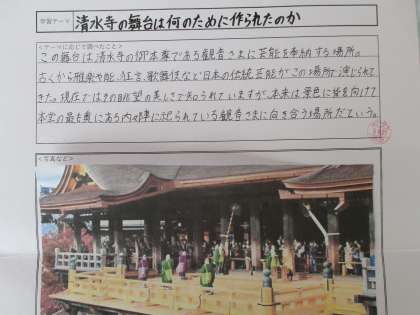 学習テーマ
清水寺の舞台は何のために作られたのか
<テーマに応じて調べたこと>
この舞台は、清水寺の御本尊である観音さまに芸能を奉納する場所。
古くから雅楽や能、狂言、歌舞伎など日本の伝統芸能がこの場所で演じられて
きた。現在ではその眺望の美しさで知られていますが、本来は景色に背を向けて
本堂の最も奥にある内々陣に祀られている観音さまに向き合う場所だという。
<写真など>